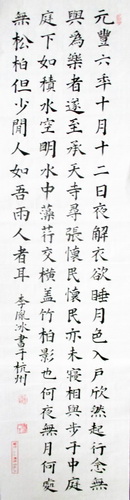 元豐六年十月十二日夜解衣欲睡月色入戶欣然起行念無
與為樂者遂至承天寺尋張懷民懷民亦未寢相與步于中庭
庭下如積水空明水中藻荇交橫蓋竹柏影也何夜無月何處
無松柏但少閒人如吾兩人者耳
李嵐冰書于杭州